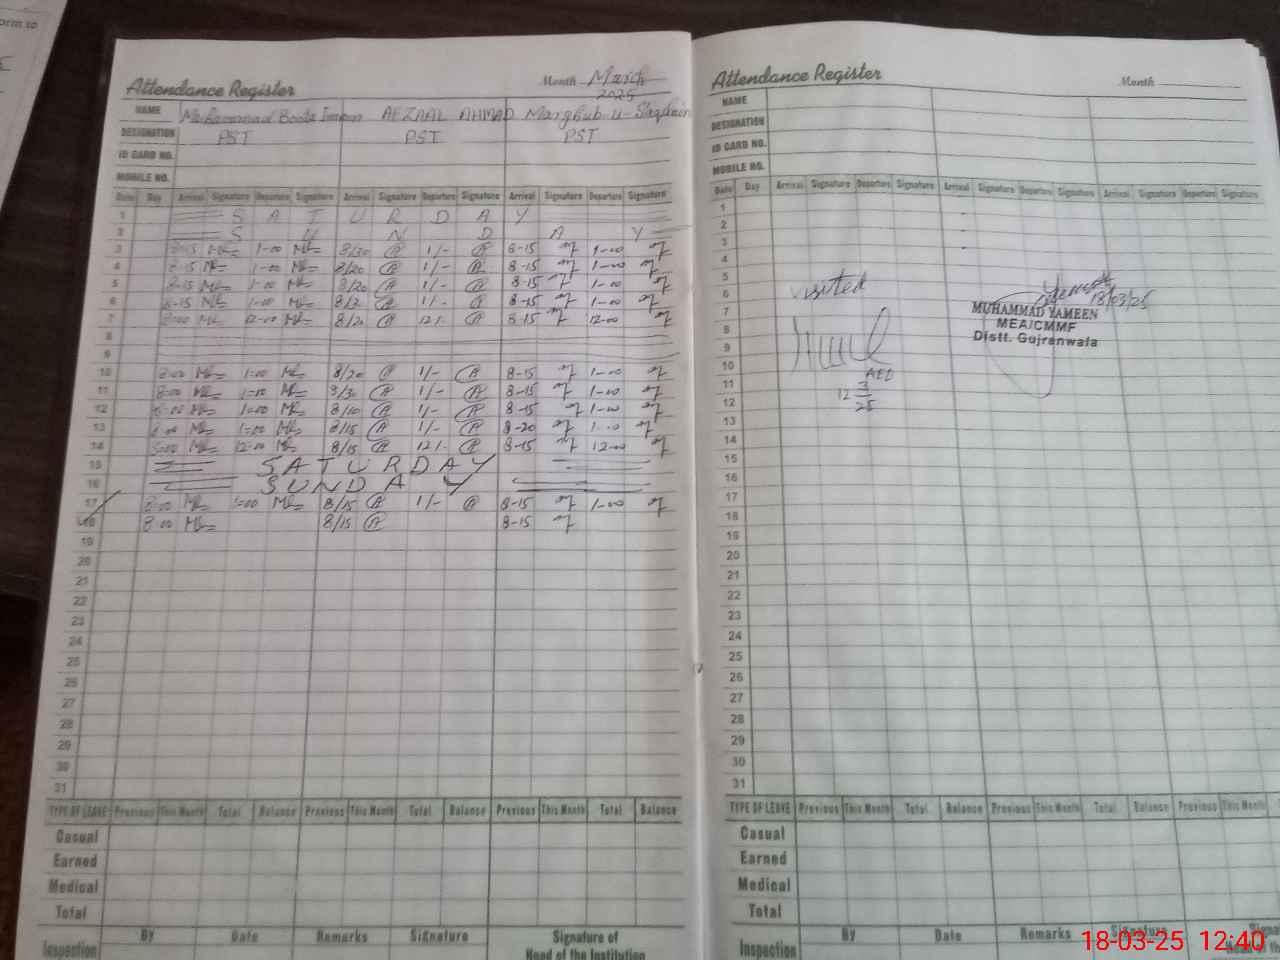 orm to
Attendance Register
Month March
2025
NAME Muhammad Boota Imam AFZAAL AHMAD Marghub-u-Saqlain
DESIGNATION PST PST PST
ID CARD NO.
MOBILE NO.
Date Day Arrival Signature Departure Signature Arrival Signature Departure Signature Arrival Signature Departure Signature
1 S A T U R D A Y
2 S U N D A Y
3 8-15 1-00 8/20 1/- 8-15 1-00
4 8-15 1-00 8/20 1/- 8-15 1-00
5 8-15 1-00 8/20 1/- 8-15 1-00
6 8-15 1-00 8/2 1/- 8-15 1-00
7 8:00 12-00 8/20 12/- 8-15 12-00
8
9
10 8:00 1:00 8/20 1/- 8-15 1-00
11 8:00 1:00 1/- 8-15 1-00
12 8:00 1:00 8/10 1/- 8-15 1-00
13 8:00 1:00 8/15 1/- 8-20 1-00
14 8:00 12:00 8/15 12/- 8-15 12-00
15 SATURDAY
16 SUNDAY
17 8:00 1:00 8/15 1/- 8-15 1-00
18 8:00 8/15 8-15
19
20
21
22
23
24
25
26
27
28
29
30
31
TYPE OF LEAVE Previous This Month Total Balance Previous This Month Total Balance Previous This Month Total Balance
Casual
Earned
Medical
Total
Inspection By Date Remarks Signature Signature of
Head of the Institution
Attendance Register
Month
NAME
DESIGNATION
ID CARD NO.
MOBILE NO.
Date Day Arrival Signature Departure Signature Arrival Signature Departure Signature Arrival Signature Departure Signature
1
2
3
4
5
6
7
8
9
10
11
12
13
14
15
16
17
18
19
20
21
22
23
24
25
26
27
28
29
30
31
visited
AEO
12 3
25
18/03/25
MUHAMMAD YAMEEN
MEA/CMMF
Distt. Gujranwala
TYPE OF LEAVE Previous This Month Total Balance Previous This Month Total Balance Previous This Month
Casual
Earned
Medical
Total
Inspection By Date Remarks Signature
18-03-25 12:40